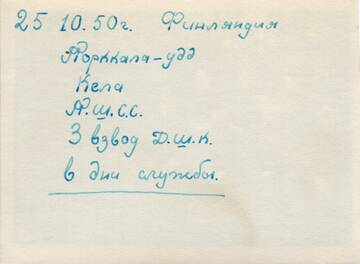 25 10.50г. Финляндия
Порккала-удд
Кела
П.Ш.С.С.
3 взвод Д.Ш.К.
в дни службы.